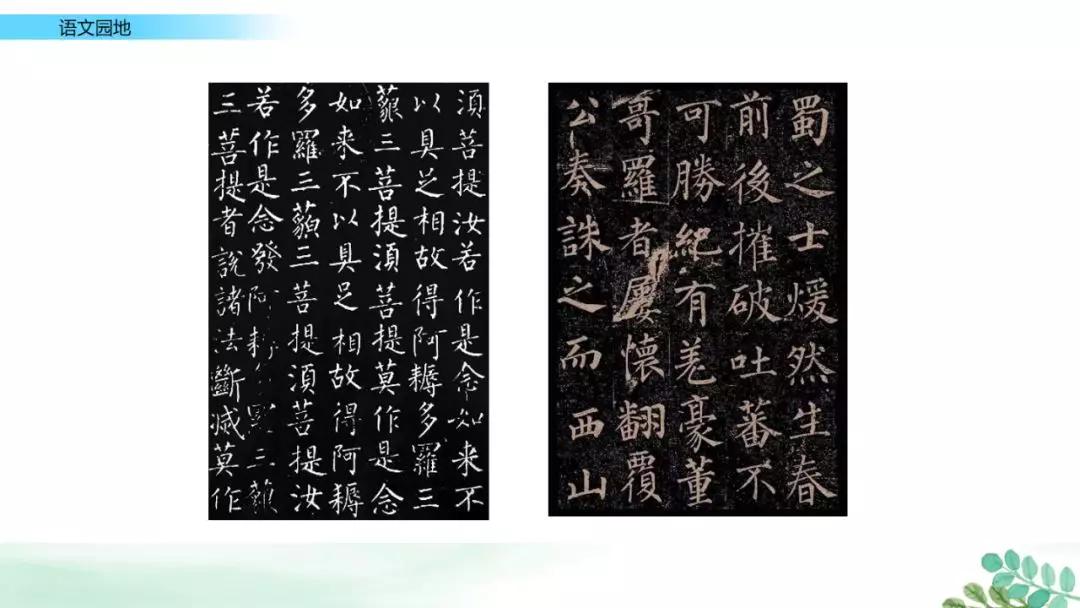 语文园地
須菩提汝若作是念如来不
以具足相故得阿耨多羅三
藐三菩提須菩提莫作是念
如来不以具足相故得阿耨
多羅三藐三菩提須菩提汝
若作是念發阿耨三藐
三菩提者說諸法斷滅莫作
蜀之士煖然生春
前後摧破吐蕃不
可勝紀有羌豪董
哥羅者屢懷翻覆
公奏誅之而西山